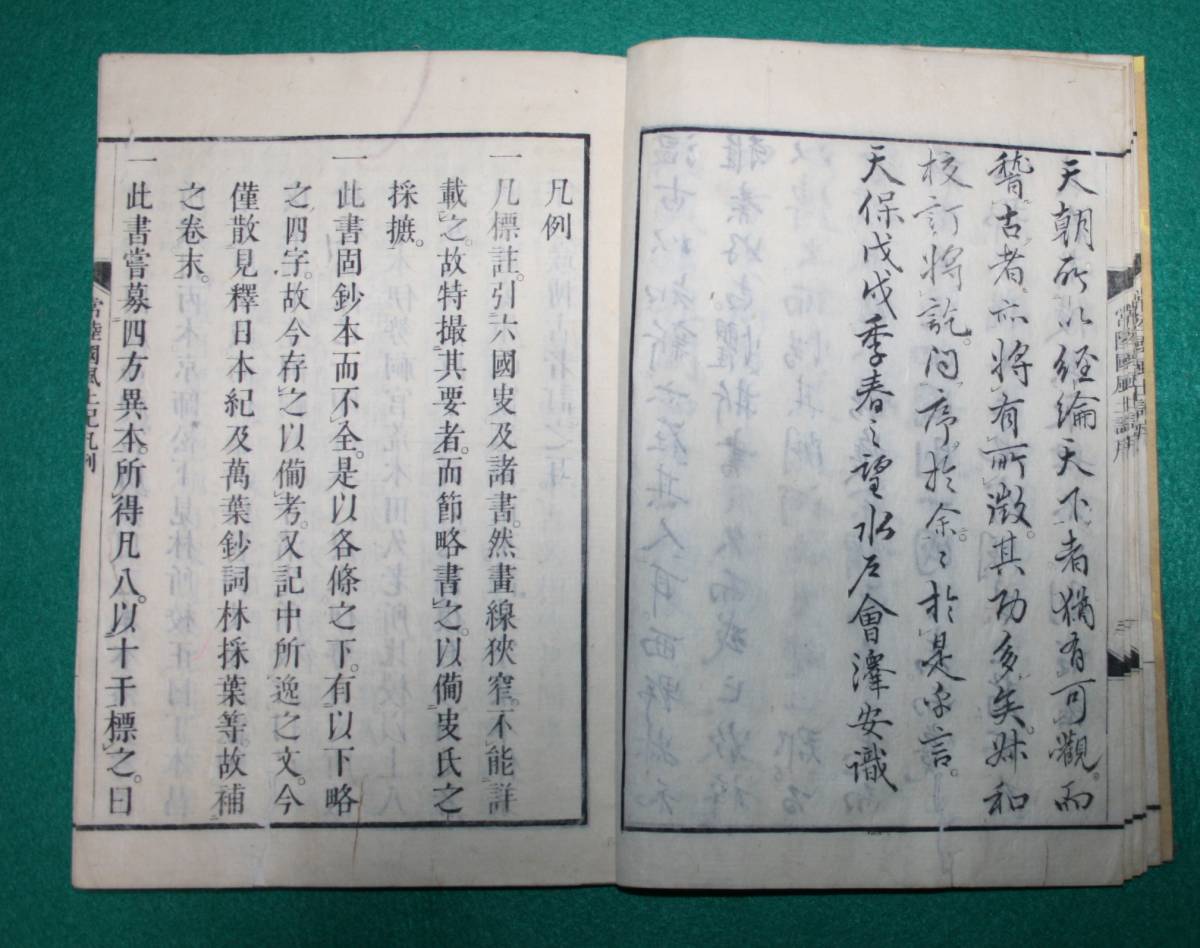 天朝所以經綸天下者猶有可觀而
稽古者亦將有所徴其功多矣
校訂將訖問序於余〻於是乎言
天保戊戌季春之望水戸會澤安識
常陸國風土記序
凡例
一凡標註引六國史及諸書然畫線狹窄不能詳
載之故特撮其要者而節略書之以備史氏之
採摭
一此書固鈔本而不全是以各條之下有以下略
之四字故今存之以備考又記中所逸之文今
僅散見釋日本紀及萬葉鈔詞林採葉等故補
之卷末
一此書嘗募四方異本所得凡八以十干標之曰
常陸國風土記凡例